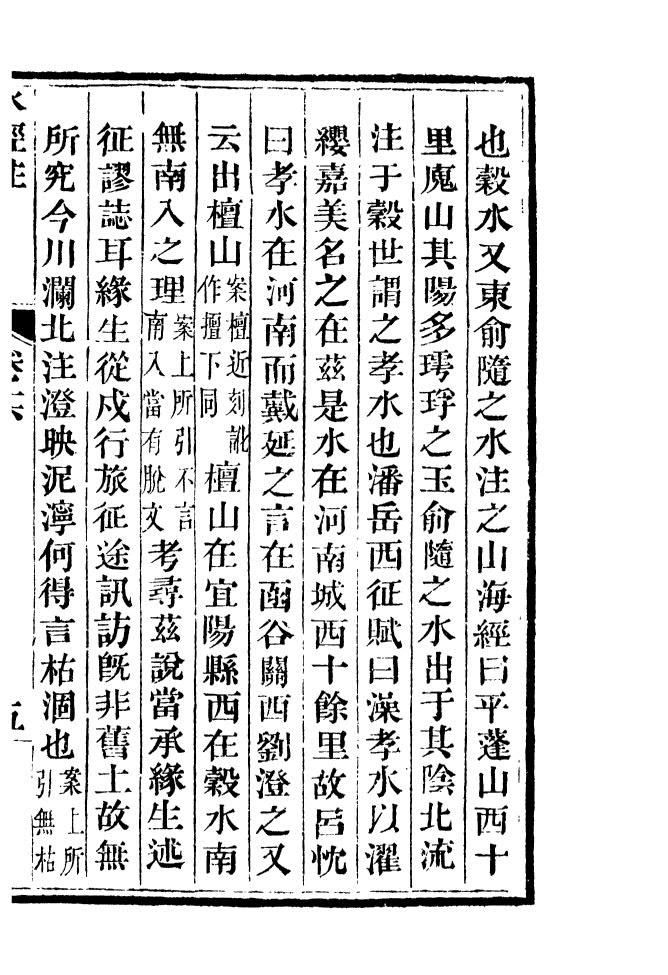 也穀水又東俞隨之水注之山海經曰平蓬山西十
里廆山其陽多㻬琈之玉俞隨之水出于其陰北流
注于穀世謂之孝水也潘岳西征賦曰澡孝水以濯
纓嘉美名之在茲是水在河南城西十餘里故呂忱
曰孝水在河南而戴延之言在函谷關西劉澄之又
云出檀山案檀近刻訛作擅下同檀山在宜陽縣西在穀水南
無南入之理案上所引不言南入當有脫文考尋茲說當承緣生述
征謬誌耳緣生從戍行旅征途訊訪旣非舊土故無
所究今川瀾北注澄映泥濘何得言枯涸也案上所引無枯
水經注
卷十六
五